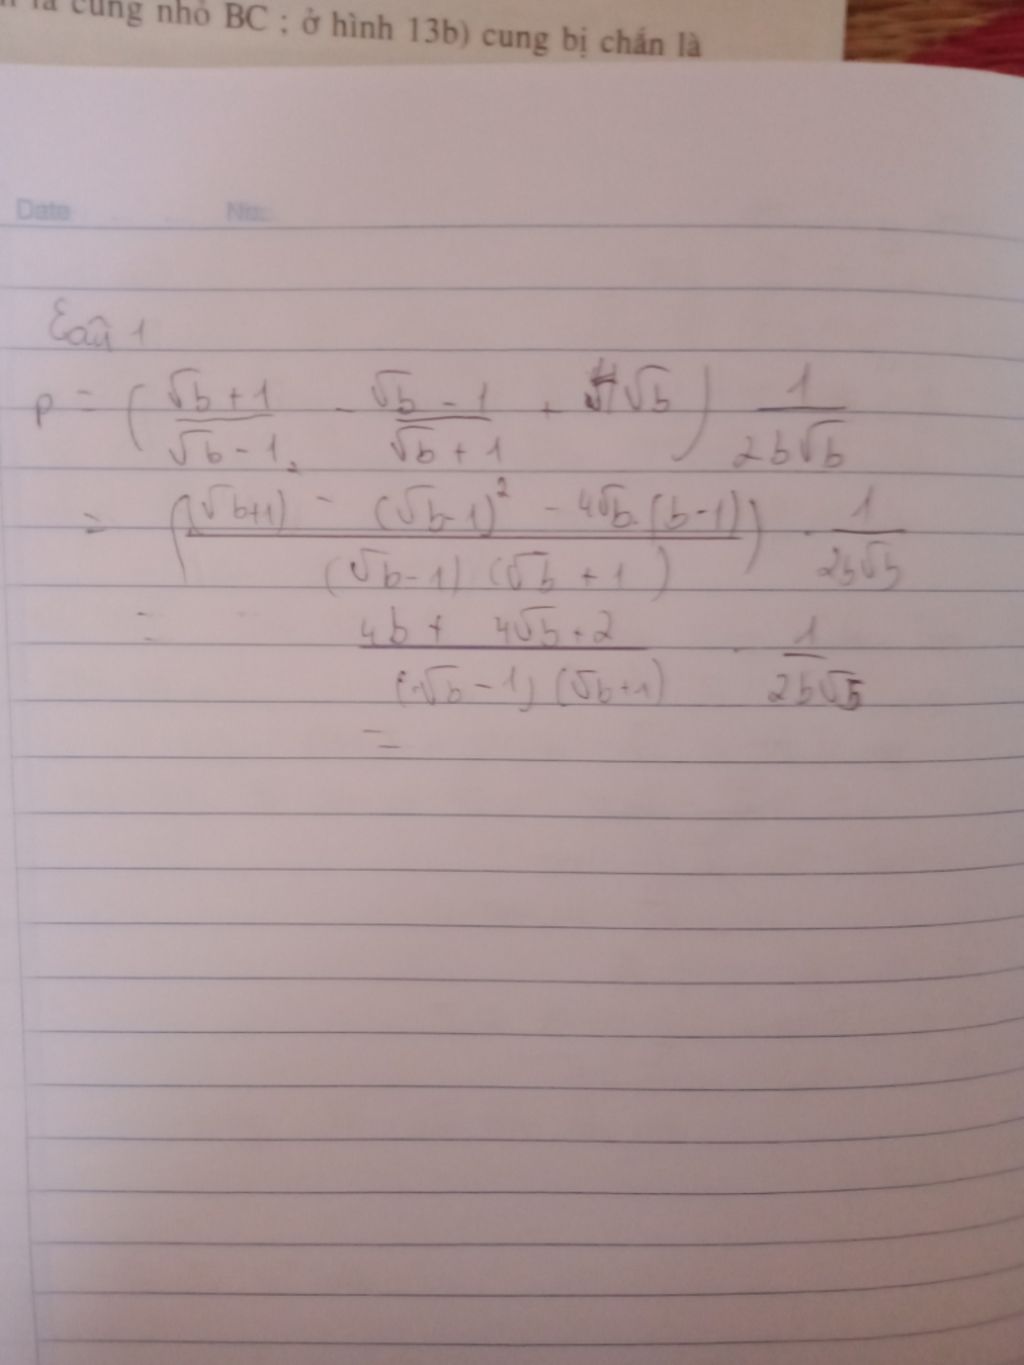 là cung nhỏ BC ; ở hình 13b) cung bị chắn là
Date No:
Câu 1
P = ( (√b + 1)/(√b - 1) - (√b - 1)/(√b + 1) + 4√b ) 1/(2b√b)
= ( ((√b+1)² - (√b-1)² - 4√b.(b-1))/((√b-1) (√b + 1)) ) . 1/(2b√b)
= (4b + 4√b + 2)/((√b - 1) (√b+1)) . 1/(2b√b)
=